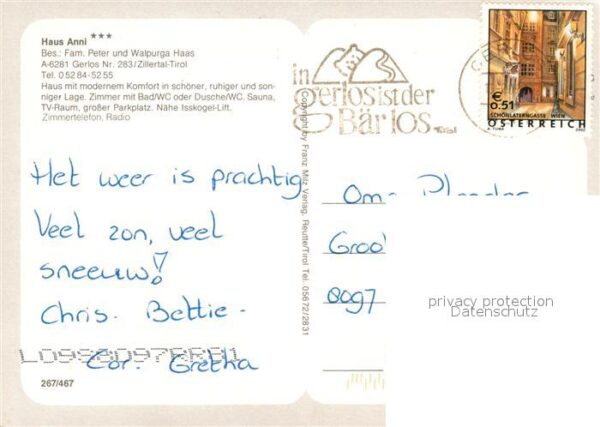 Haus Anni ***
Bes.: Fam. Peter und Walpurga Haas
A-6281 Gerlos Nr. 283/Zillertal-Tirol
Tel. 0 52 84 - 52 55
Haus mit modernem Komfort in schöner, ruhiger und son-
niger Lage. Zimmer mit Bad/WC oder Dusche/WC. Sauna,
TV-Raum, großer Parkplatz. Nähe Isskogel-Lift.
Zimmertelefon, Radio
Het weer is prachtig
Veel zon, veel
sneeuw!
Chris. Bettie.
Cor. Gretha
267/467
Copyright by Franz Milz Verlag, Reutte/Tirol Tel. 05672/2831
in
gerlos ist der
Bär los.
Tirol
€
0.51
SCHÖNLATERNGASSE WIEN
ÖSTERREICH
2002
8097
privacy protection
Datenschutz